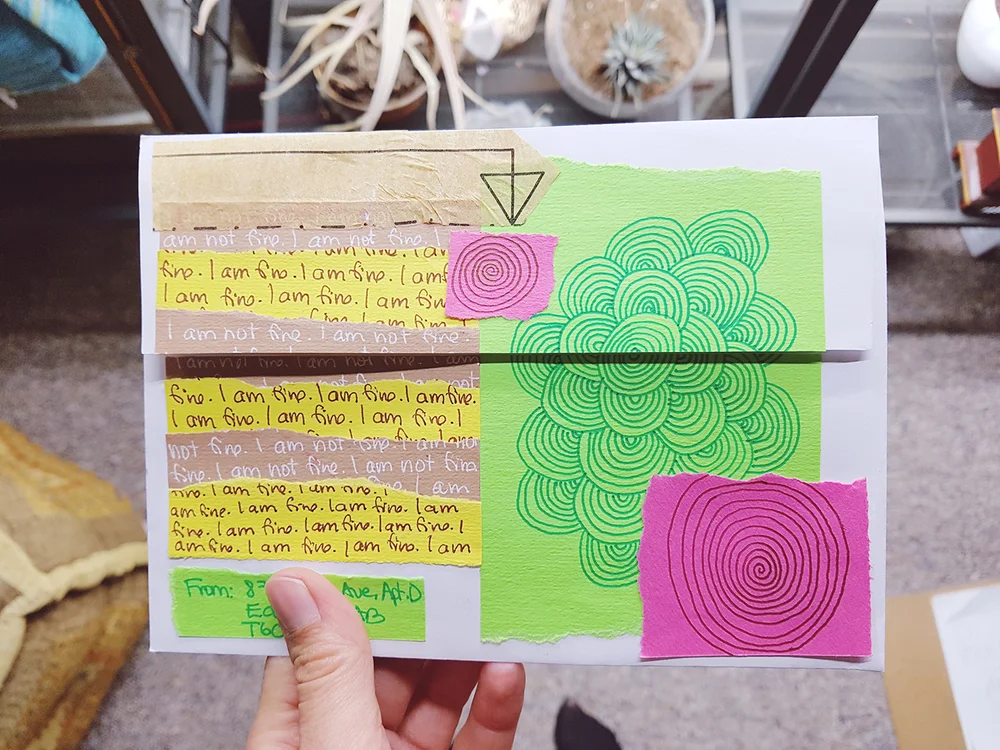 am not fine. I am not
am not fine. I am not fine. I
fine. I am fine. I am fine. I am f
I am fine. I am fine. I am fine
I am not fine. I am not fine.
fine. I am fine. I am fine. I am fine.
I am fine. I am fine. I am fine. I
not fine. I am not fine. I am not
fine. I am not fine. I am not fine
I am
fine. I am fine. I am fine. I
am fine. I am fine. I am fine. I am
fine. I am fine. I am fine. I am fine. I
am fine. I am fine. I am fine. I am
From: 8 Ave, Apt. D
AB